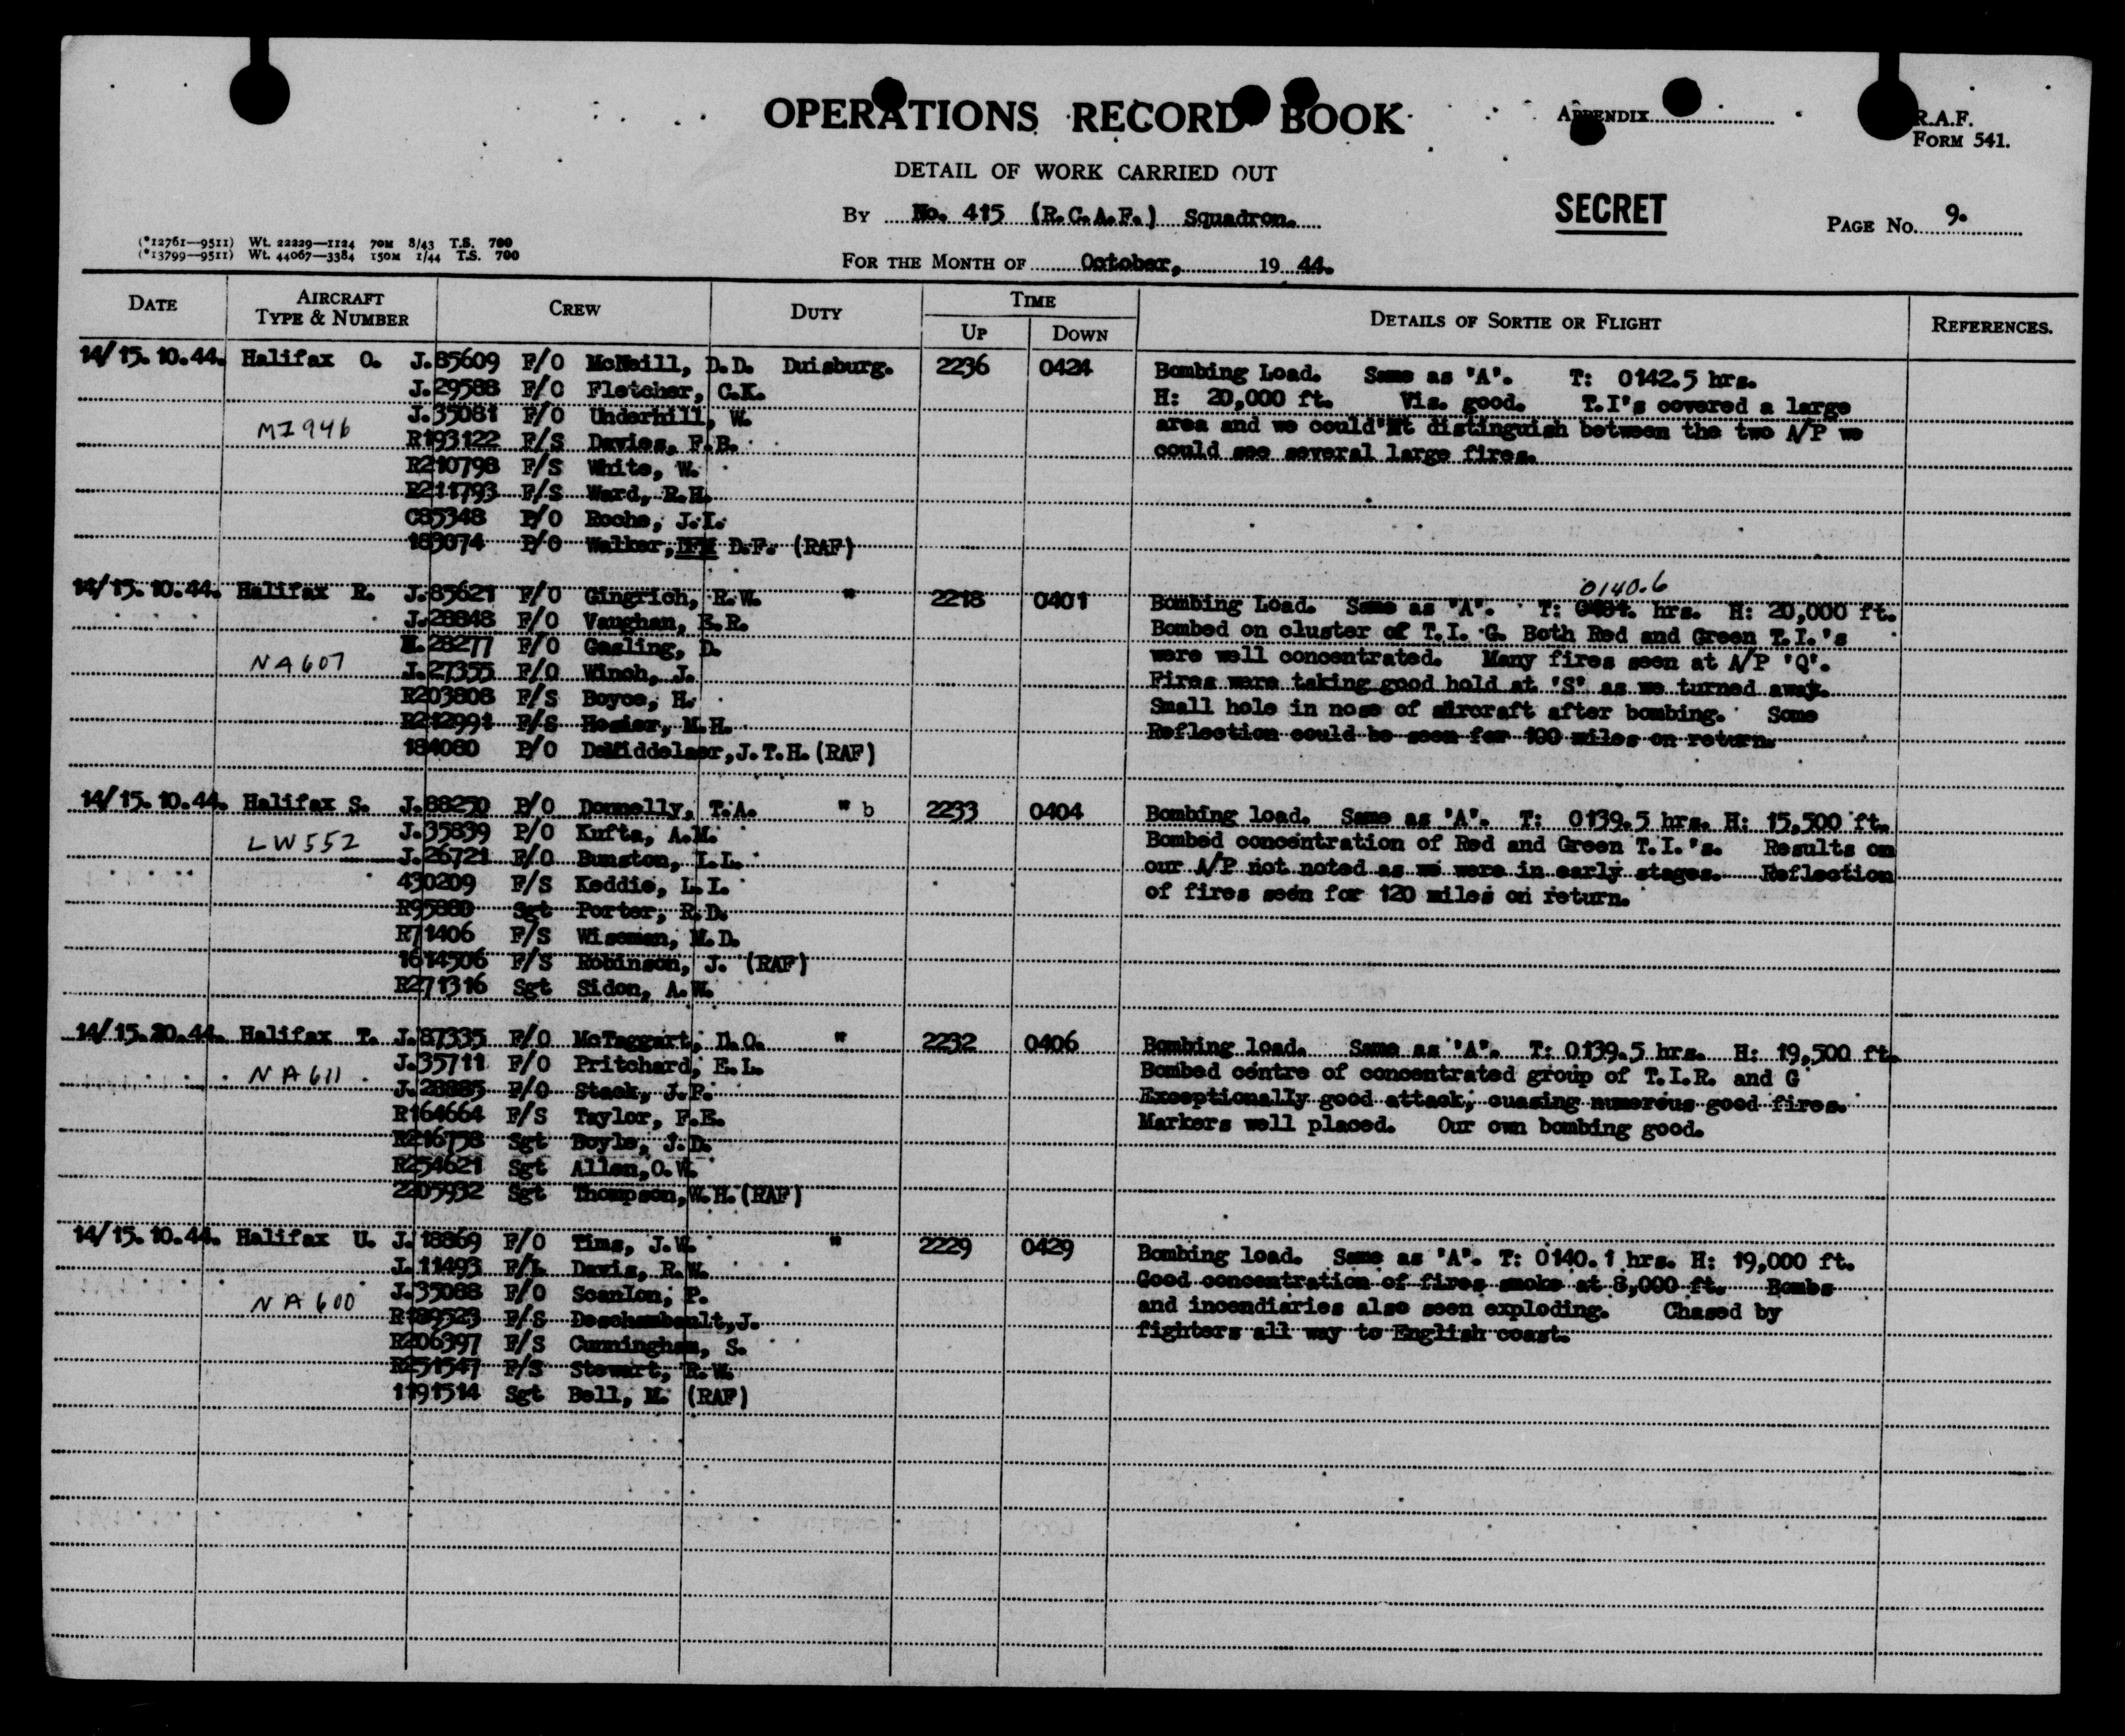 OPERATIONS RECORD BOOK
APPENDIX
R.A.F.
FORM 541.
DETAIL OF WORK CARRIED OUT
BY No. 415 (R.C.A.F.) Squadron.
SECRET
PAGE No. 9.
(*12761—9511) Wt. 22229—1124 70M 8/43 T.S. 700
(*13799—9511) Wt. 44067—3384 150M 1/44 T.S. 700
FOR THE MONTH OF October, 19 44.
DATE AIRCRAFT TYPE & NUMBER CREW DUTY TIME UP DOWN DETAILS OF SORTIE OR FLIGHT REFERENCES.
14/15.10.44. Halifax O. J.85609 F/O McNeill, D.D. Duisburg. 2236 0424 Bombing Load. Same as "A". T: 0142.5 hrs.
J.29588 F/O Fletcher, C.K. H: 20,000 ft. Vis. good. T.I's covered a large
J.35081 F/O Underhill, W. area and we could'nt distinguish between the two A/P we
MZ946 R193122 F/S Davies, F.B. could see several large fires.
R210798 F/S White, W.
R211793 F/S Ward, R.H.
C85348 P/O Roche, J.I.
189074 P/O Walker, DFM D.F. (RAF)
14/15.10.44. Halifax R. J.85621 F/O Gingrich, R.W. " 2218 0401 Bombing Load. Same as "A". T: 0140.6 hrs. H: 20,000 ft.
J.28848 F/O Vaughan, E.R. Bombed on cluster of T.I. G. Both Red and Green T.I.'s
28277 F/O Gasling, D. were well concentrated. Many fires seen at A/P 'Q'.
NA607 J.27355 F/O Winch, J. Fires were taking good hold at 'S' as we turned away.
R203808 F/S Boyce, H. Small hole in nose of aircraft after bombing. Some
R212991 F/S Hosier, M.H. Reflection could be seen for 100 miles on return.
184080 P/O DeMiddelaer, J.T.H. (RAF)
14/15.10.44. Halifax S. J.88250 P/O Donnelly, T.A. " b 2233 0404 Bombing load. Same as 'A'. T: 0139.5 hrs. H: 15,500 ft.
J.35839 P/O Kufta, A.M. Bombed concentration of Red and Green T.I.'s. Results on
LW552 J.26721 F/O Bunston, I.L. our A/P not noted as we were in early stages. Reflection
430209 F/S Keddie, L.I. of fires seen for 120 miles on return.
R95880 Sgt Porter, R.D.
R71406 F/S Wiseman, M.D.
1614506 F/S Robinson, J. (RAF)
R271316 Sgt Sidon, A.W.
14/15.10.44. Halifax T. J.87335 F/O McTaggart, D.O. " 2232 0406 Bombing load. Same as "A". T: 0139.5 hrs. H: 19,500 ft.
J.35711 F/O Pritchard, E.L. Bombed centre of concentrated group of T.I.R. and G
NA611 J.28885 F/O Stack, J.P. Exceptionally good attack, cuasing numerous good fires.
R164664 F/S Taylor, F.E. Markers well placed. Our own bombing good.
R216758 Sgt Boyle, J.D.
R254621 Sgt Allen, O.W.
2205932 Sgt Thompson, W.H. (RAF)
14/15.10.44. Halifax U. J.18869 F/O Tims, J.W. " 2229 0429 Bombing load. Same as "A". T: 0140.1 hrs. H: 19,000 ft.
J.11493 F/L Davis, R.W. Good concentration of fires smoke at 8,000 ft. Bombs
NA600 J.35088 F/O Scanlon, P. and incendiaries also seen exploding. Chased by
R189523 F/S Deschambault, J. fighters all way to English coast.
R206397 F/S Cunningham, S.
R251547 F/S Stewart, R.W.
1191514 Sgt Bell, M. (RAF)